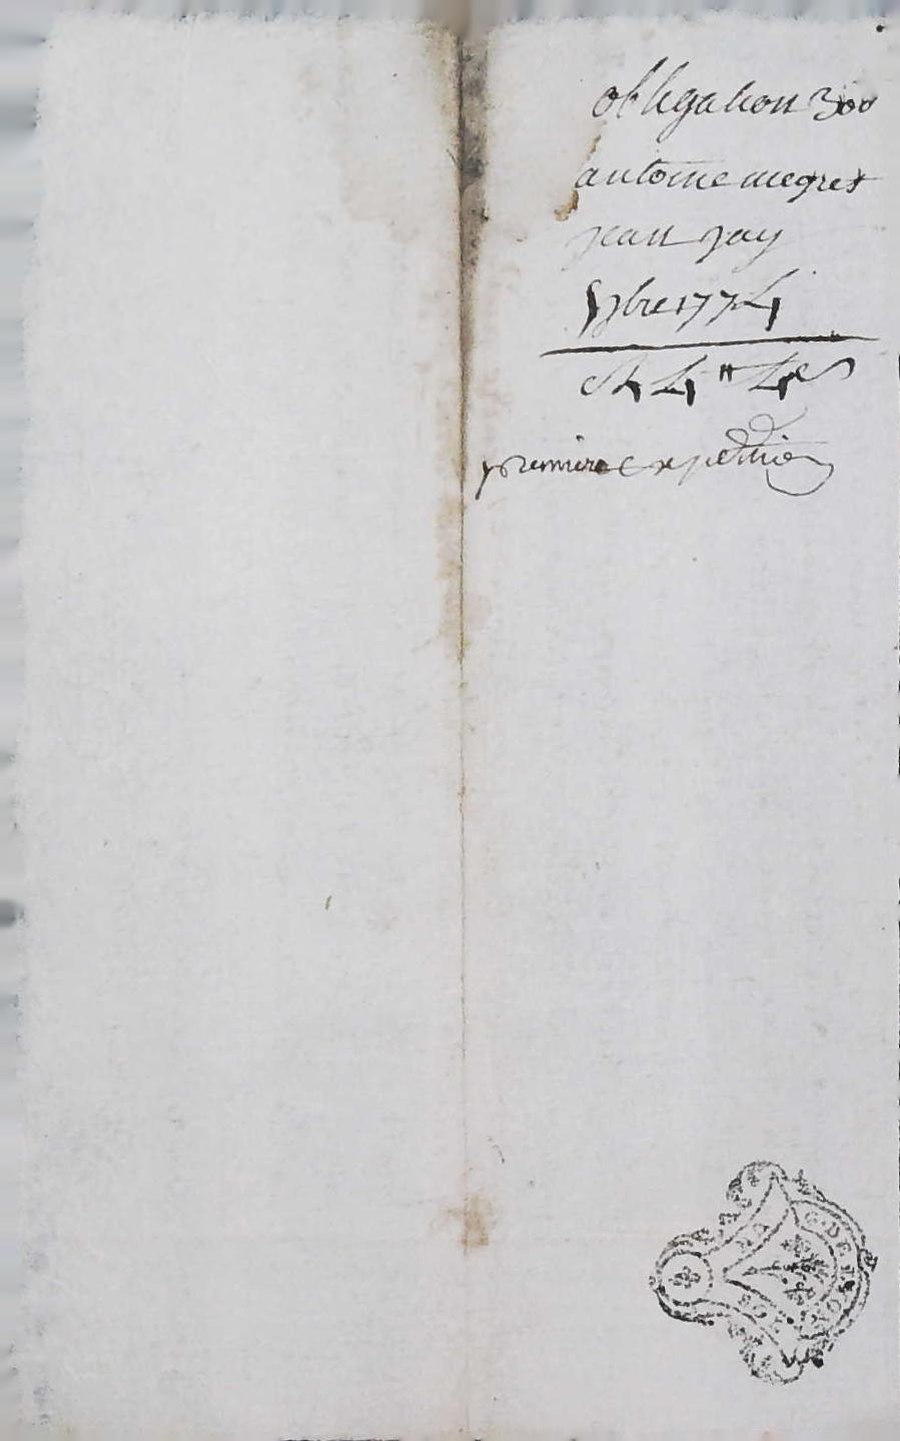 obligation 300
antoine megret
jean jay
9bre 1774
premiere expedition
G. DE LYON